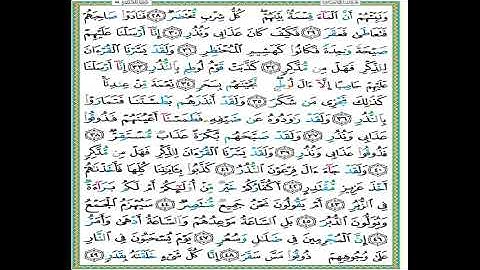 وَنَبِّئْهُمْ أَنَّ ٱلْمَآءَ قِسْمَةٌۢ بَيْنَهُمْ كُلُّ شِرْبٍ مُّحْتَضَرٌ ٢٨ فَنَادَوْا۟ صَاحِبَهُمْ
فَتَعَاطَىٰ فَعَقَرَ ٢٩ فَكَيْفَ كَانَ عَذَابِى وَنُذُرِ ٣٠ إِنَّآ أَرْسَلْنَا عَلَيْهِمْ
صَيْحَةً وَٰحِدَةً فَكَانُوا۟ كَهَشِيمِ ٱلْمُحْتَظِرِ ٣١ وَلَقَدْ يَسَّرْنَا ٱلْقُرْءَانَ
لِلذِّكْرِ فَهَلْ مِن مُّدَّكِرٍ ٣٢ كَذَّبَتْ قَوْمُ لُوطٍۭ بِٱلنُّذُرِ ٣٣ إِنَّآ أَرْسَلْنَا
عَلَيْهِمْ حَاصِبًا إِلَّآ ءَالَ لُوطٍ نَّجَّيْنَٰهُم بِسَحَرٍ ٣٤ نِّعْمَةً مِّنْ عِندِنَا
كَذَٰلِكَ نَجْزِى مَن شَكَرَ ٣٥ وَلَقَدْ أَنذَرَهُم بَطْشَتَنَا فَتَمَارَوْا۟
بِٱلنُّذُرِ ٣٦ وَلَقَدْ رَٰوَدُوهُ عَن ضَيْفِهِۦ فَطَمَسْنَآ أَعْيُنَهُمْ فَذُوقُوا۟
عَذَابِى وَنُذُرِ ٣٧ وَلَقَدْ صَبَّحَهُم بُكْرَةً عَذَابٌ مُّسْتَقِرٌّ ٣٨
فَذُوقُوا۟ عَذَابِى وَنُذُرِ ٣٩ وَلَقَدْ يَسَّرْنَا ٱلْقُرْءَانَ لِلذِّكْرِ فَهَلْ مِن مُّدَّكِرٍ
٤٠ وَلَقَدْ جَآءَ ءَالَ فِرْعَوْنَ ٱلنُّذُرُ ٤١ كَذَّبُوا۟ بِـَٔايَٰتِنَا كُلِّهَا فَأَخَذْنَٰهُمْ
أَخْذَ عَزِيزٍ مُّقْتَدِرٍ ٤٢ أَكُفَّارُكُمْ خَيْرٌ مِّنْ أُو۟لَٰٓئِكُمْ أَمْ لَكُم بَرَآءَةٌ
فِى ٱلزُّبُرِ ٤٣ أَمْ يَقُولُونَ نَحْنُ جَمِيعٌ مُّنتَصِرٌ ٤٤ سَيُهْزَمُ ٱلْجَمْعُ
وَيُوَلُّونَ ٱلدُّبُرَ ٤٥ بَلِ ٱلسَّاعَةُ مَوْعِدُهُمْ وَٱلسَّاعَةُ أَدْهَىٰ وَأَمَرُّ
٤٦ إِنَّ ٱلْمُجْرِمِينَ فِى ضَلَٰلٍ وَسُعُرٍ ٤٧ يَوْمَ يُسْحَبُونَ فِى ٱلنَّارِ
عَلَىٰ وُجُوهِهِمْ ذُوقُوا۟ مَسَّ سَقَرَ ٤٨ إِنَّا كُلَّ شَىْءٍ خَلَقْنَٰهُ بِقَدَرٍ ٤٩